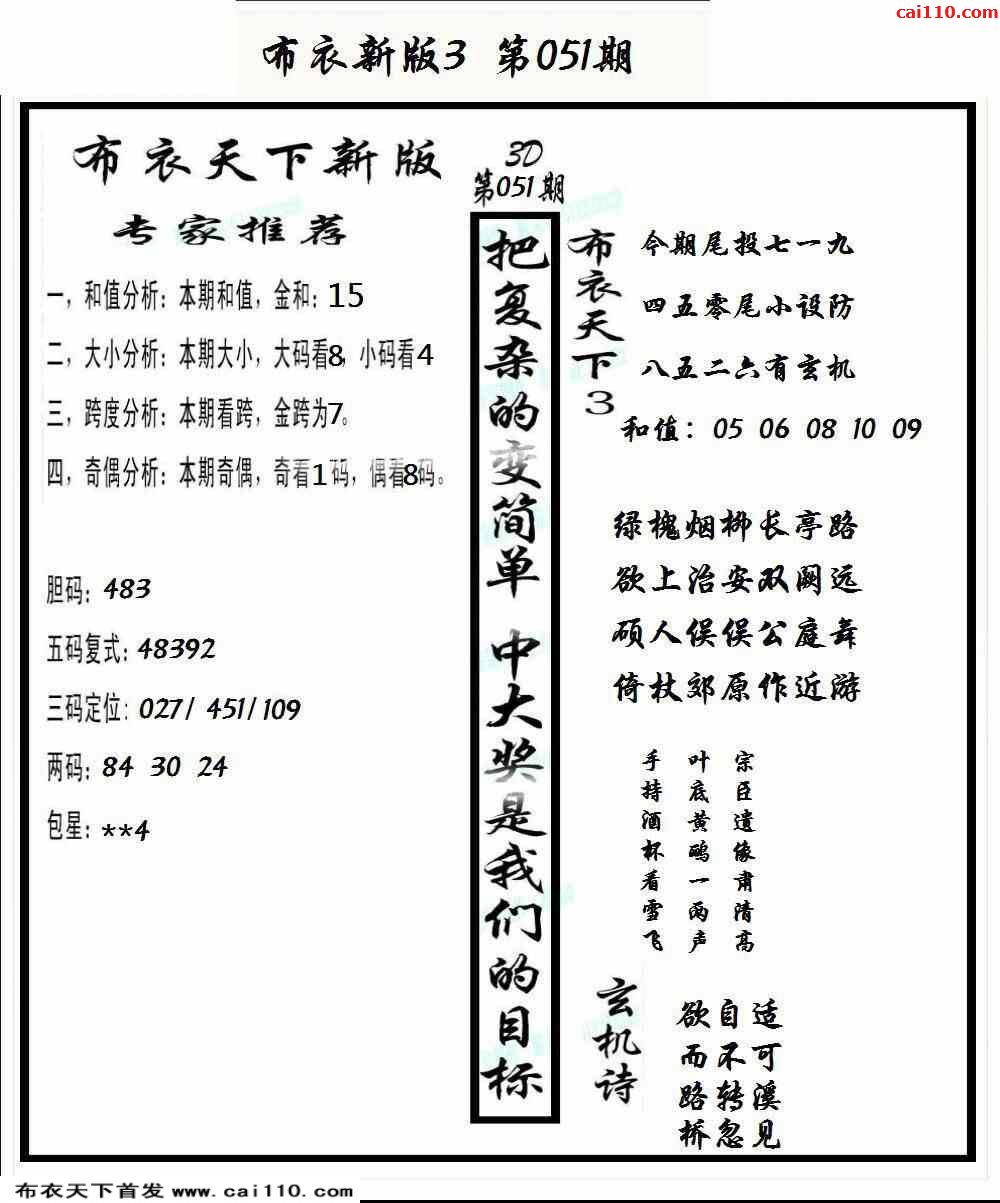 cai110.com
布衣新版3 第051期
布衣天下新版
专家推荐
一，和值分析：本期和值，金和：15
二，大小分析：本期大小，大码看8，小码看4
三，跨度分析：本期看跨，金跨为7。
四，奇偶分析：本期奇偶，奇看1码，偶看8码。
胆码：483
五码复式：48392
三码定位：027/ 451/109
两码：84 30 24
包星：**4
3D
第051期
把复杂的变简单 中大奖是我们的目标
布衣天下3
今期尾投七一九
四五零尾小设防
八五二六有玄机
和值：05 06 08 10 09
绿槐烟柳长亭路
欲上治安双阙远
硕人俣俣公庭舞
倚杖郊原作近游
宗臣遗像肃清高
叶底黄鹂一两声
手持酒杯看雪飞
玄机诗
欲自适
而不可
路转溪
桥忽见
布衣天下首发 www.cai110.com